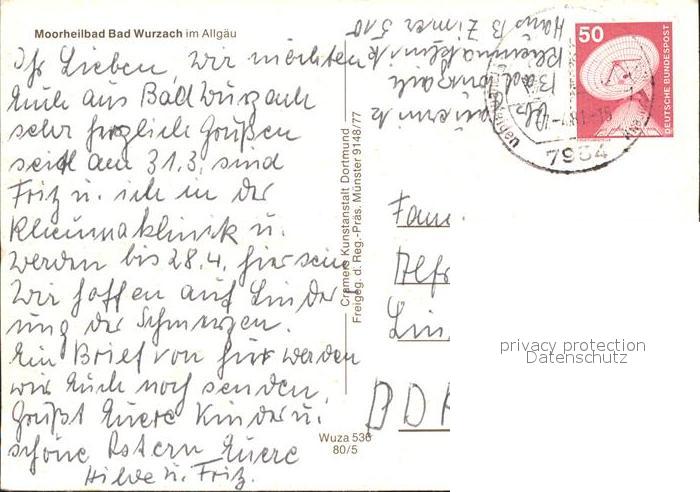 Moorheilbad Bad Wurzach im Allgäu
Ihr Lieben, wir möchten
Euch aus Bad Wurzach
sehr herzlich Grüßen
seit am 31.3. sind
Fritz u. ich in der
Rheumaklinik u.
werden bis 28.4. hier sein
Wir hoffen auf Linder
ung der Schmerzen.
Ein Brief von hier werden
wir Euch noch senden.
Grüßt Euere Kinder u.
schöne Ostern Euere
Hilde u. Fritz.
Rheumaklinik
Bad Wurzach
Haus B Zimmer 510
Cramers Kunstanstalt Dortmund
Freigeg. d. Reg.-Präs. Münster 9148/77
Wuza 536
80/5
50
DEUTSCHE BUNDESPOST
7954
Fam.
Alfr
Lin
BDR
privacy protection
Datenschutz